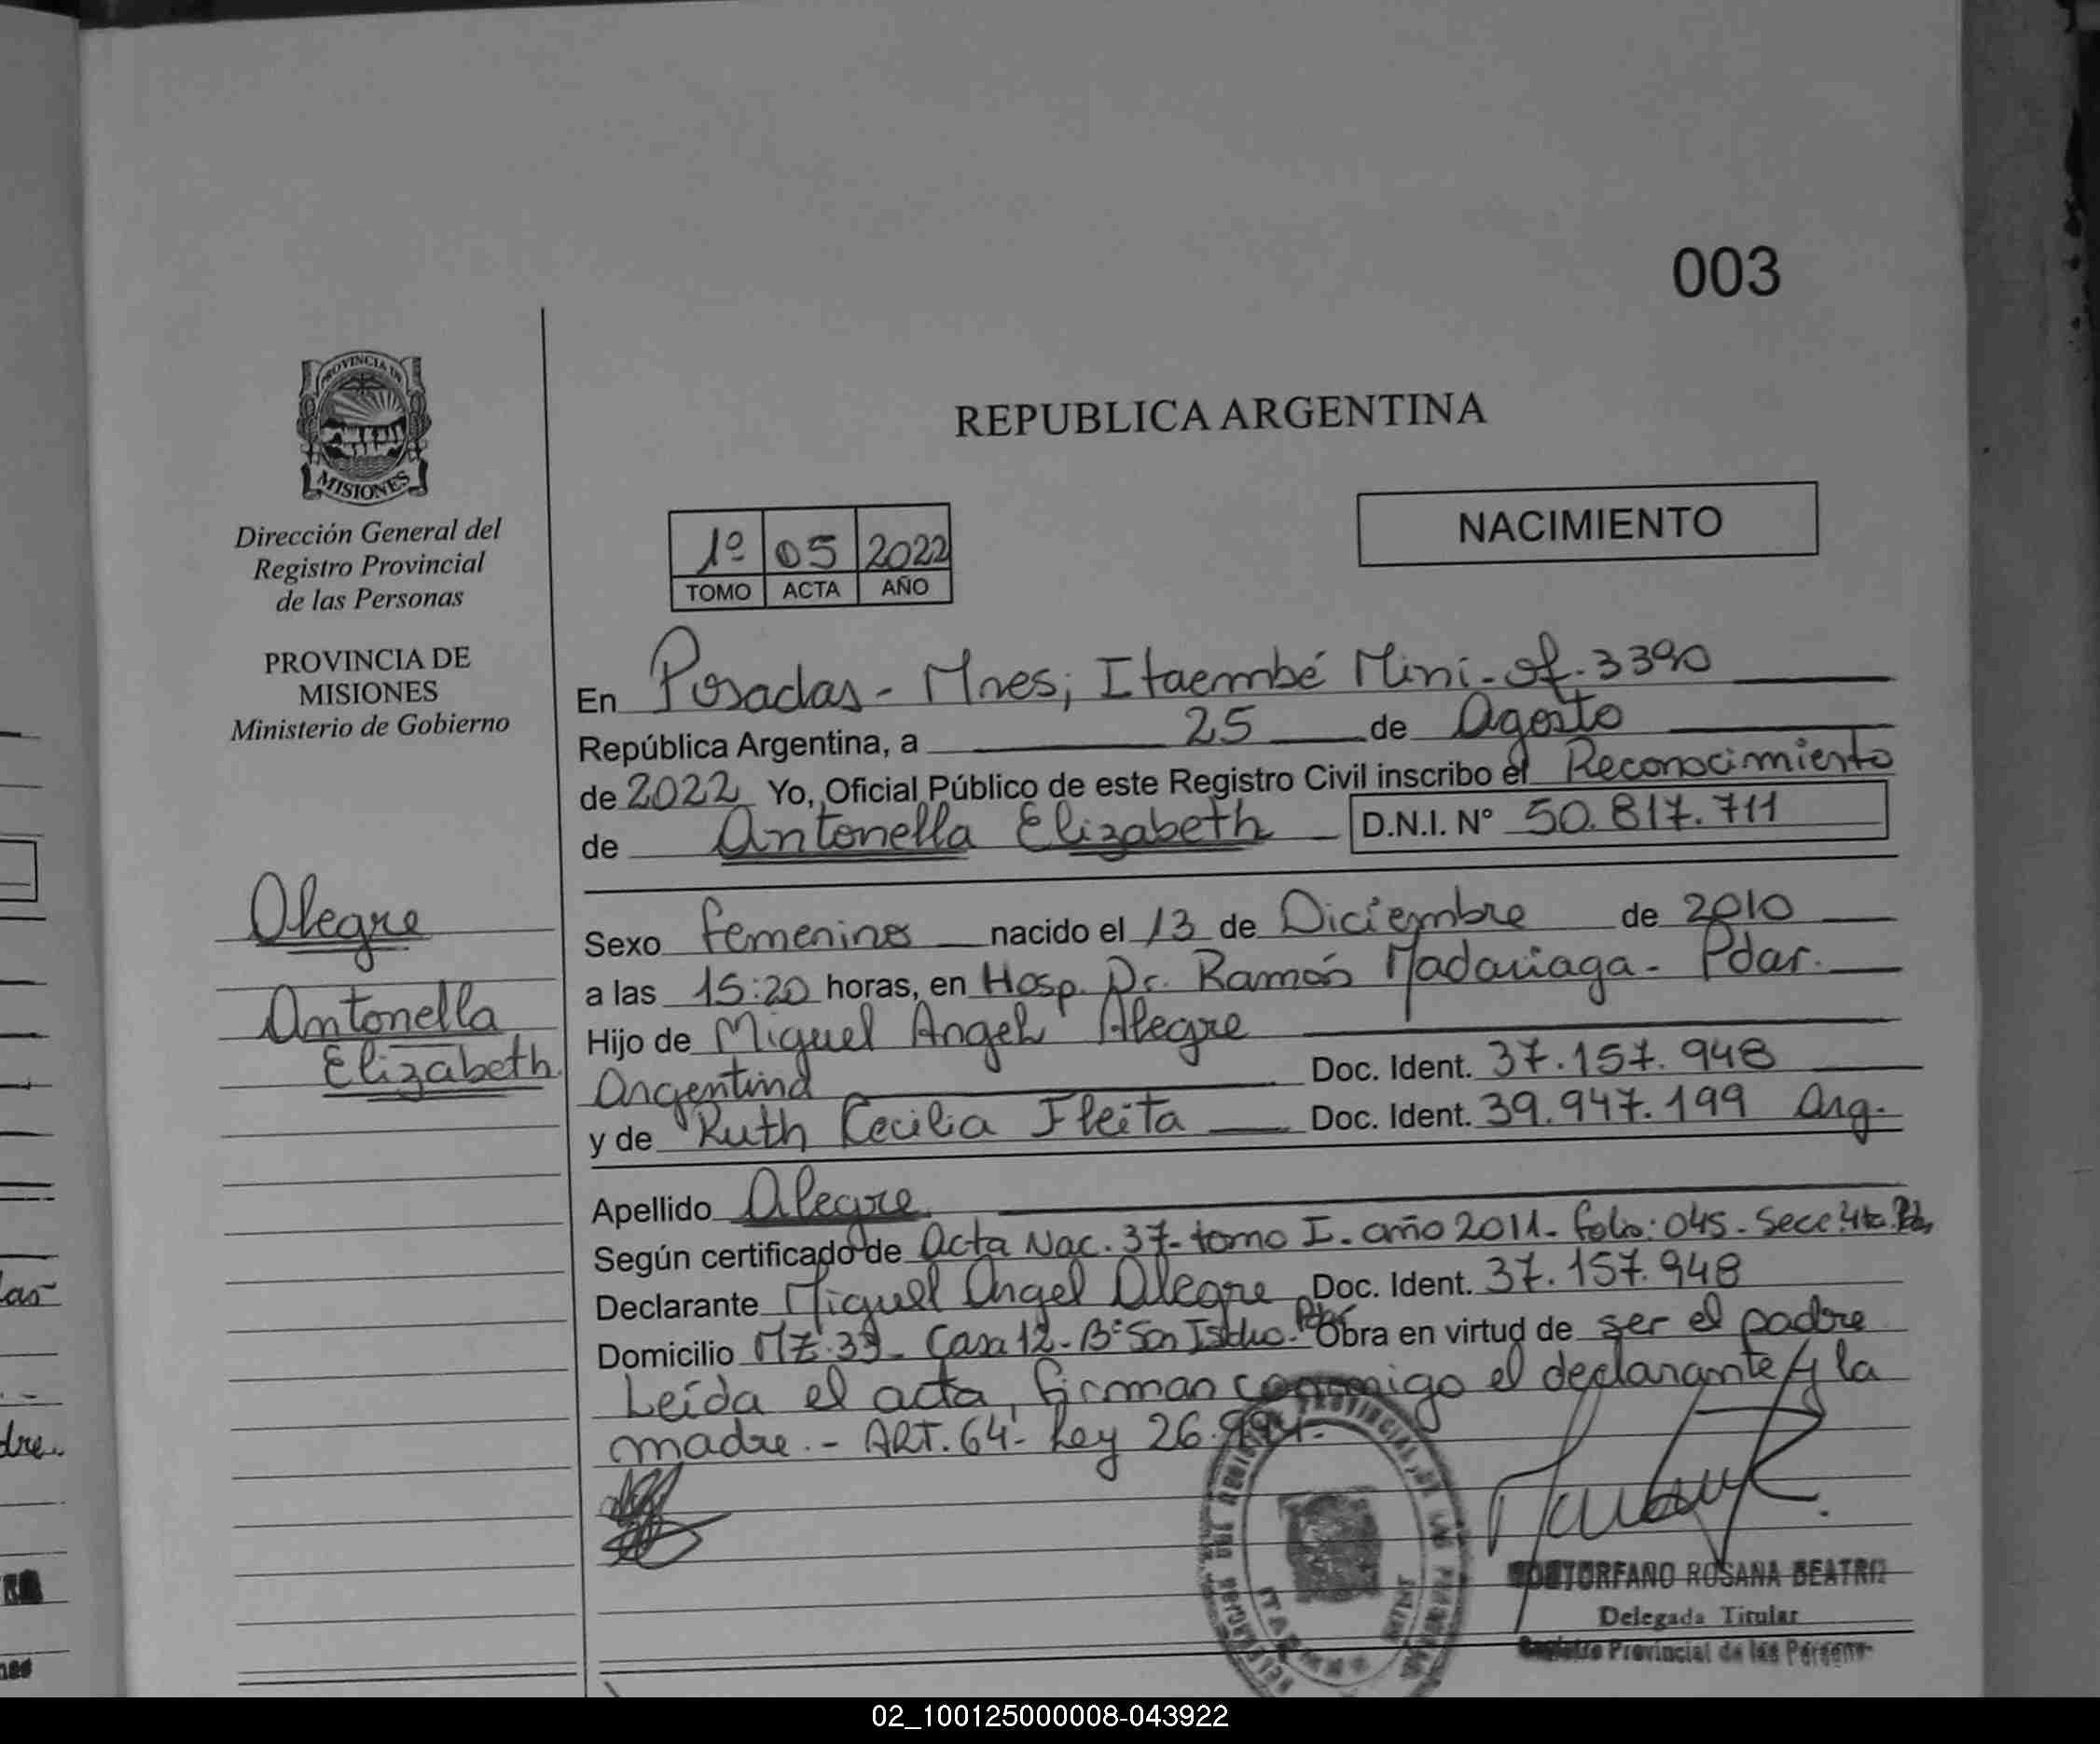 003
PROVINCIA DE
MISIONES
Dirección General del
Registro Provincial
de las Personas
PROVINCIA DE
MISIONES
Ministerio de Gobierno
Alegre
Antonella
Elizabeth
REPUBLICA ARGENTINA
NACIMIENTO
1º 05 2022
TOMO ACTA AÑO
En Posadas - Mnes; Itaembé Mini - of. 3390
República Argentina, a 25 de Agosto
de 2022 Yo, Oficial Público de este Registro Civil inscribo el Reconocimiento
de Antonella Elizabeth D.N.I. Nº 50.817.711
Sexo femenino nacido el 13 de Diciembre de 2010
a las 15:20 horas, en Hosp. Dr. Ramón Madariaga - Pdas.
Hijo de Miguel Angel Alegre
Argentina Doc. Ident. 37.157.948
y de Ruth Cecilia Fleita Doc. Ident. 39.947.199 Arg.
Apellido Alegre
Según certificado de Acta Nac. 37 - tomo I - año 2011 - folio: 045 - Secc. 4ta. Pds.
Declarante Miguel Angel Alegre Doc. Ident. 37.157.948
Domicilio Mz. 39 - Casa 12 - Bº San Isidro - Pdas Obra en virtud de ser el padre
Leída el acta, firman conmigo el declarante y la
madre. - ART. 64 - Ley 26.994.-
ROSANA BEATRIZ
Delegada Titular
Registro Provincial de las Persona
las
dre.
02_100125000008-043922